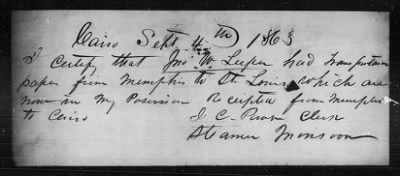 Cairo Sept 4th 1863
I Certify that Jno W Leeper had Transportation
paper from Memphis to St Louis which are
now in my Possession Receipted from Memphis
to Cairo
J C Clerk
Steamer Monsoon